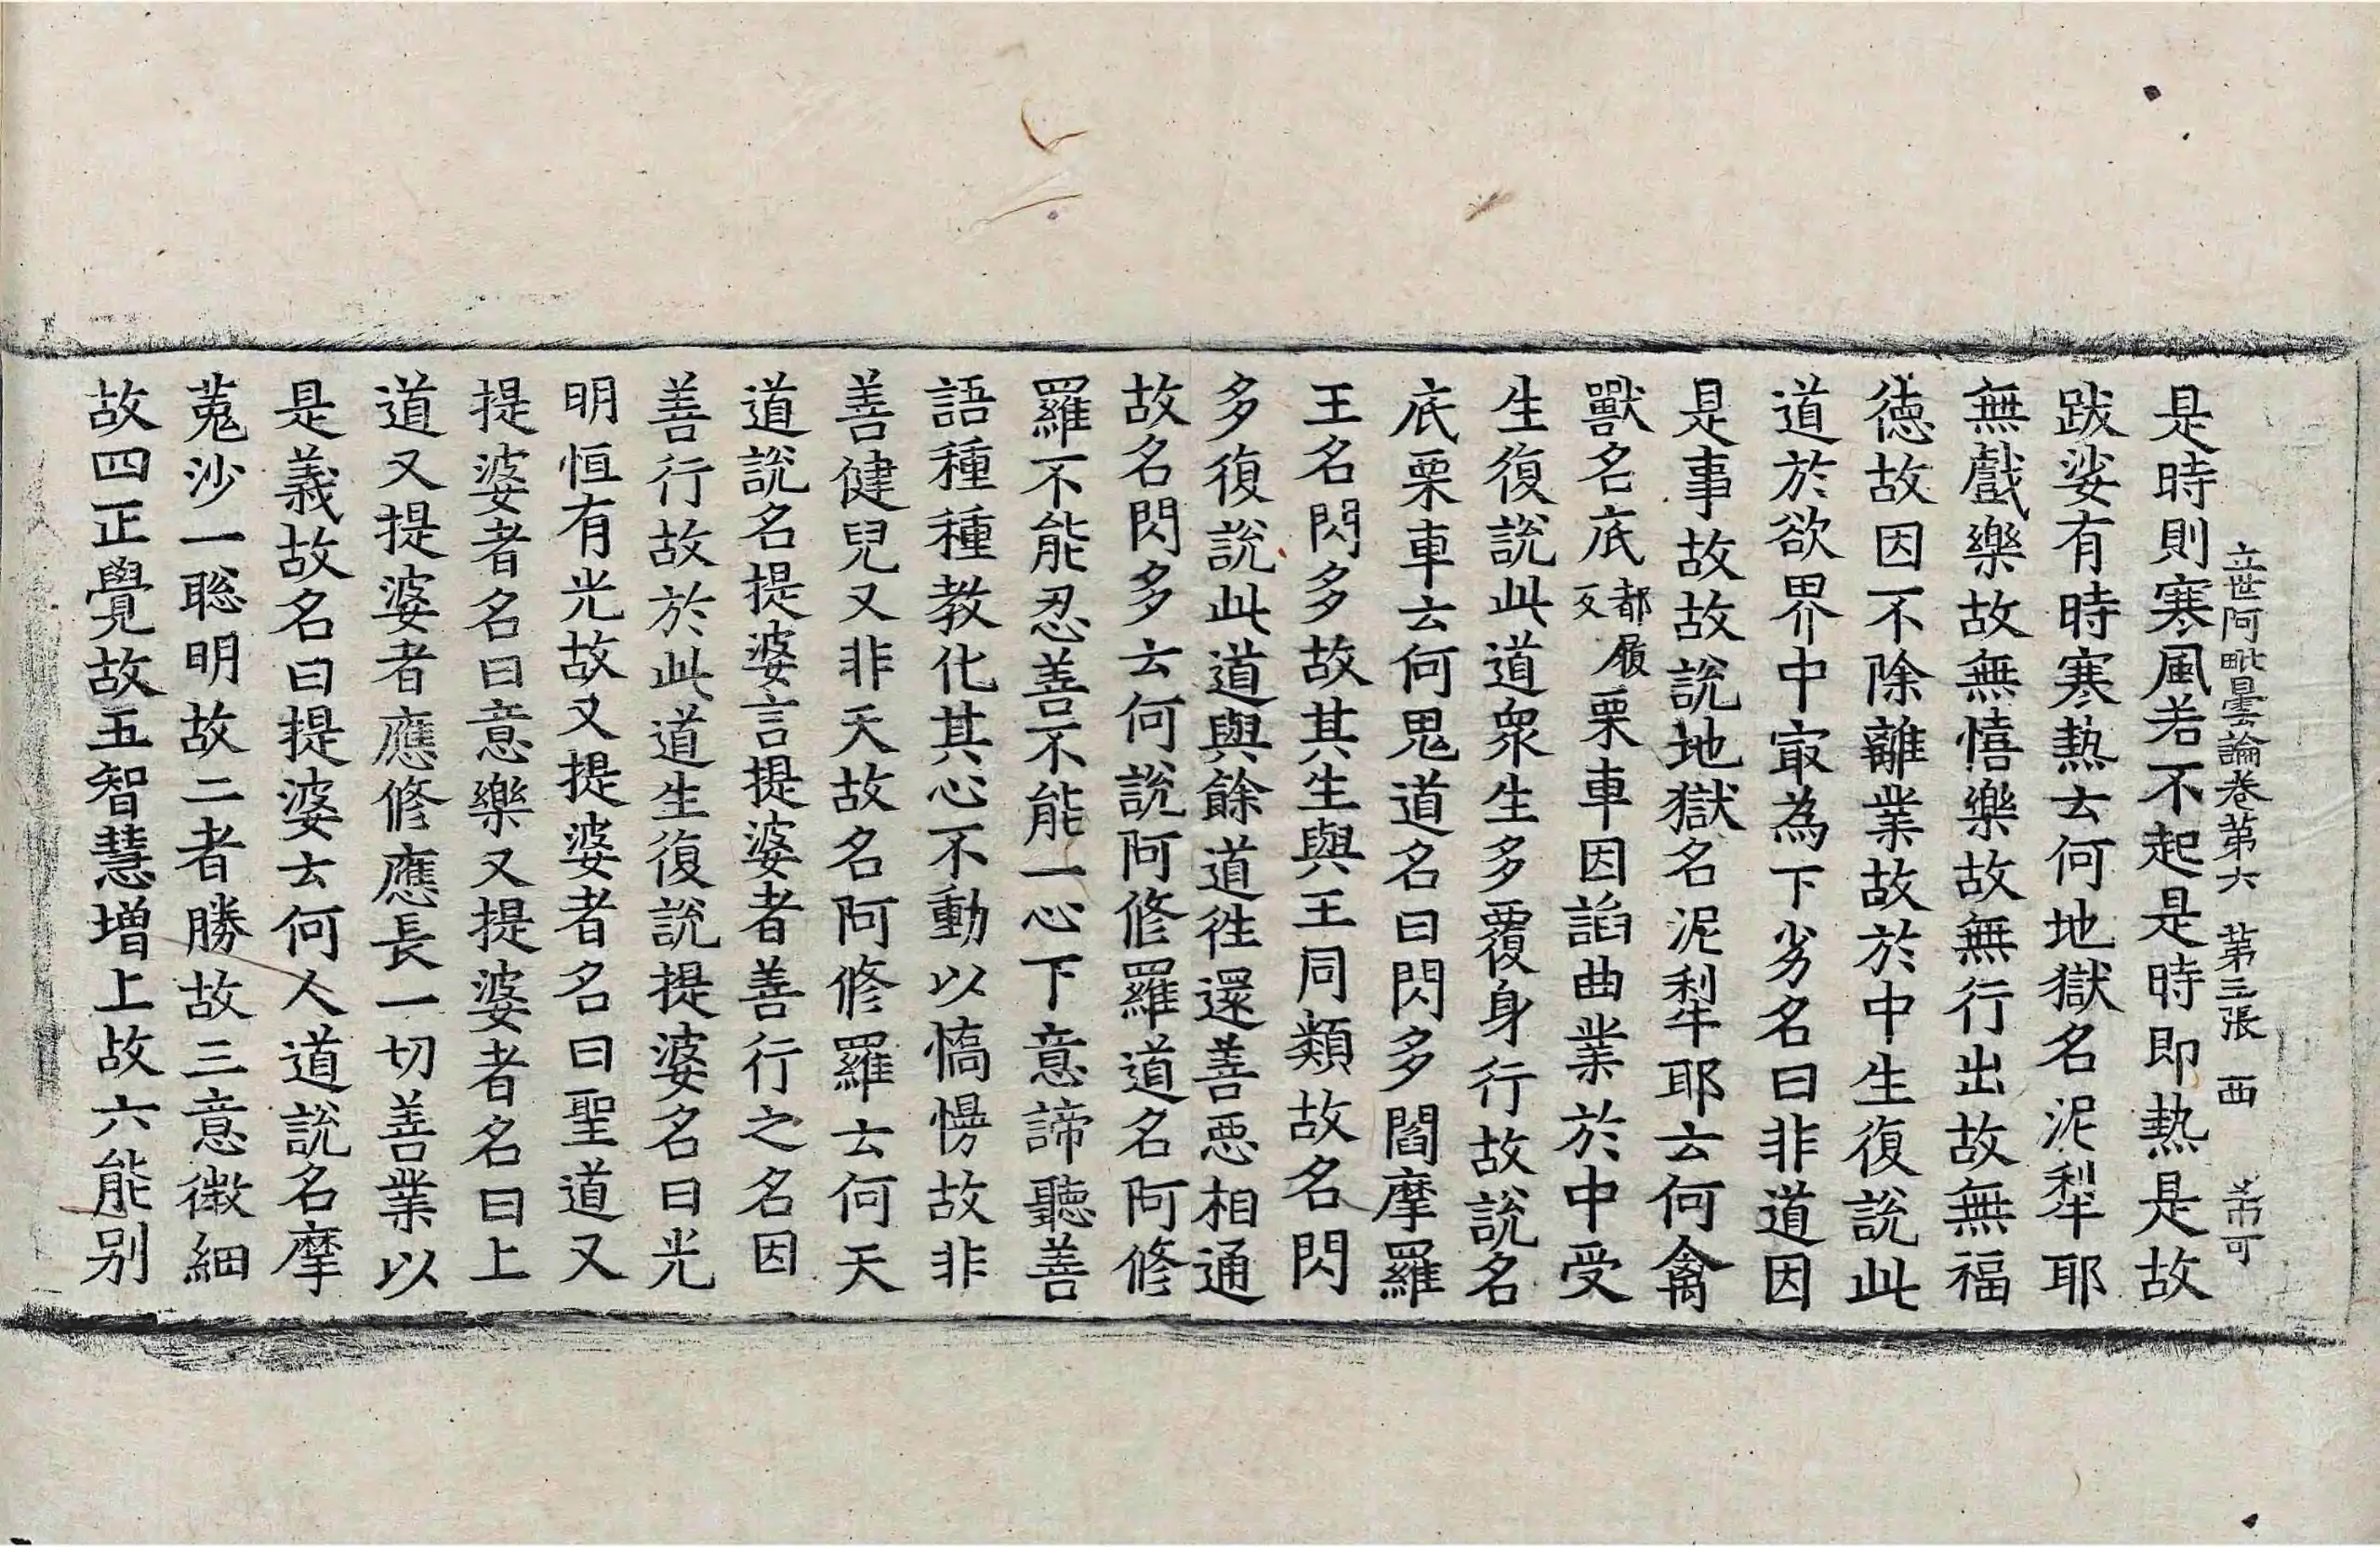 立世阿毗曇論卷第六 第三張 西
是時則寒風若不起是時即熱是故
跋娑有時寒熱云何地獄名泥犁耶
無戲樂故無憘樂故無行出故無福
德故因不除離業故於中生復說此
道於欲界中冣為下劣名曰非道因
是事故故說地獄名泥犁耶云何禽
獸名底都履反栗車因諂曲業於中受
生復說此道眾生多覆身行故說名
底栗車云何鬼道名曰閃多閻摩羅
王名閃多故其生與王同類故名閃
多復說此道與餘道往還善惡相通
故名閃多云何說阿修羅道名阿修
羅不能忍善不能一心下意諦聽善
語種種教化其心不動以憍慢故非
善健兒又非天故名阿修羅云何天
道說名提婆言提婆者善行之名因
善行故於此道生復說提婆名曰光
明恒有光故又提婆者名曰聖道又
提婆者名曰意樂又提婆者名曰上
道又提婆者應修應長一切善業以
是義故名曰提婆云何人道說名摩
㝹沙一聡明故二者勝故三意微細
故四正覺故五智慧增上故六能別